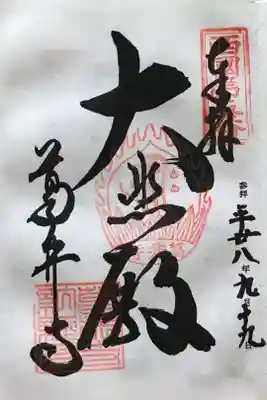 奉拝
参拝 平廿八年九月十九日
大悲殿
葛井寺